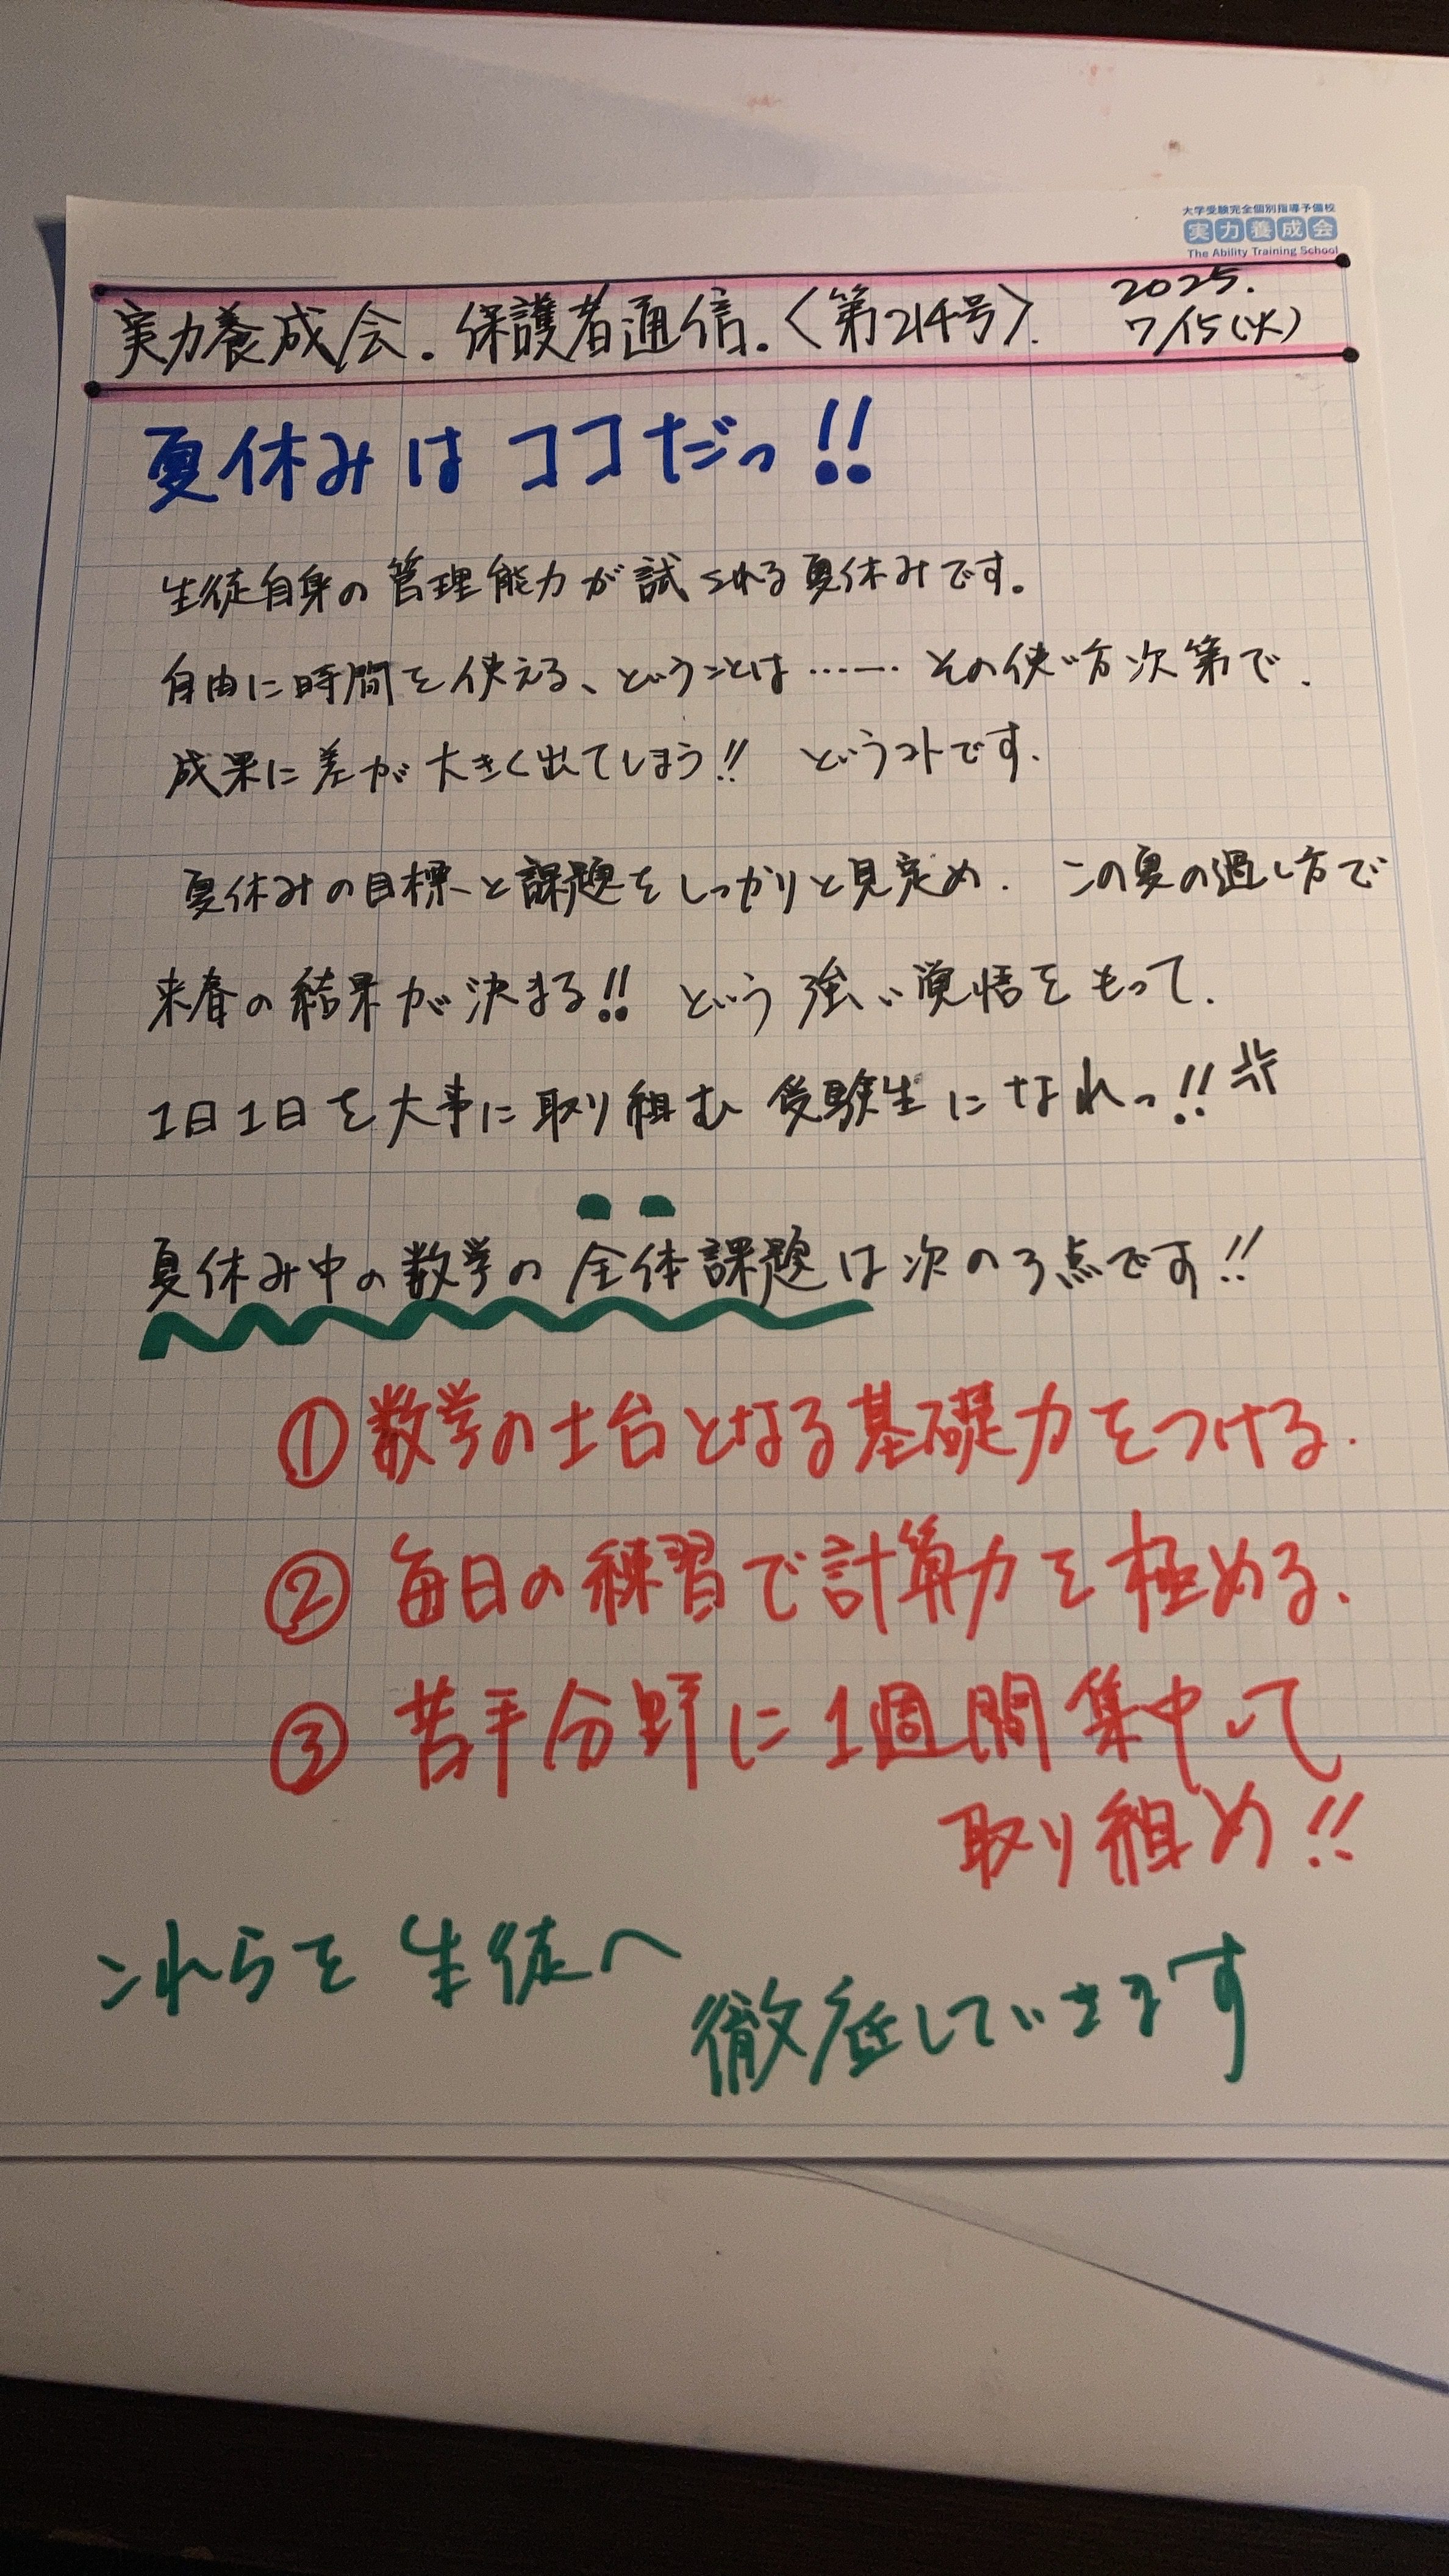 大学受験完全個別指導予備校
実力養成会
The Ability Training School
実力養成会.保護者通信.〈第214号〉.
2025.
7/15(火)
夏休みはココだっ!!
生徒自身の管理能力が試される夏休みです。
自由に時間を使える、ということは……その使い方次第で.
成果に差が大きく出てしまう!! というコトです.
夏休みの目標と課題をしっかりと見定め. この夏の過し方で
来春の結果が決まる!! という強い覚悟をもって.
1日1日を大事に取り組む受験生になれっ!!
夏休み中の数学の全体課題は次の3点です!!
①数学の土台となる基礎力をつける.
②毎日の練習で計算力を極める.
③苦手分野に1週間集中して
取り組め!!
これらを生徒へ
徹底しています